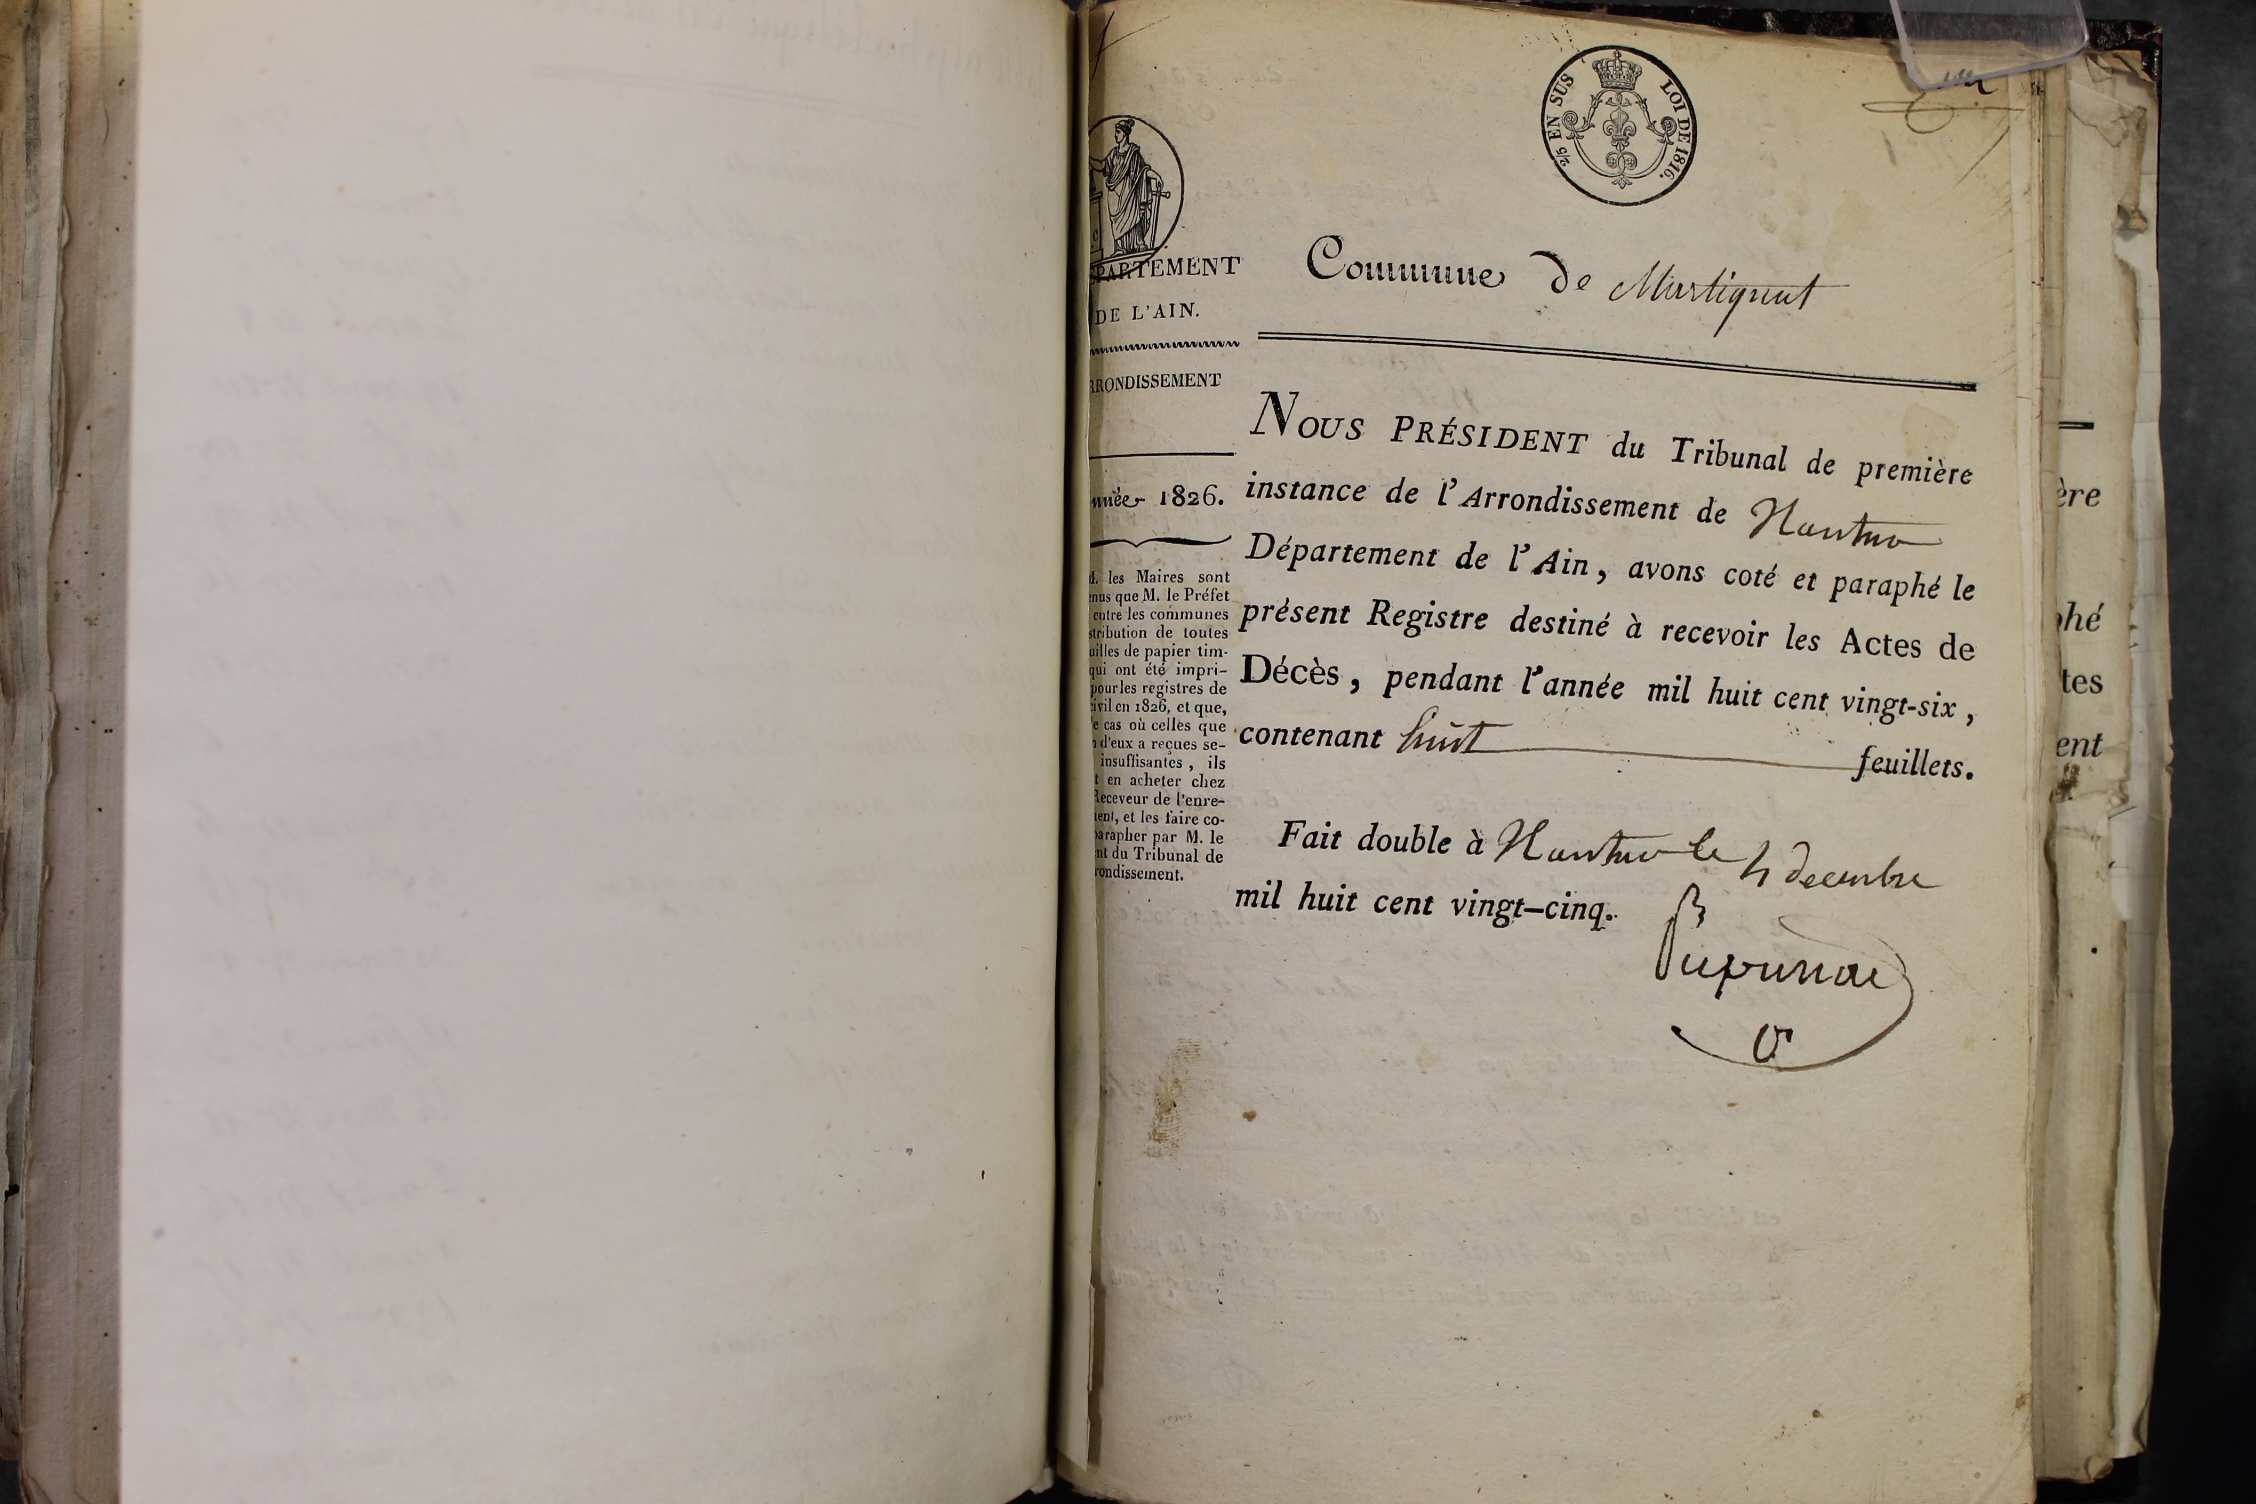 2/5 EN SUS
LOI DE 1816.
PARTEMENT
DE L'AIN.
RRONDISSEMENT
nnée 1826.
les Maires sont
nus que M. le Préfet
entre les communes
stribution de toutes
uilles de papier tim-
qui ont été impri-
pour les registres de
ivil en 1826, et que,
e cas où celles que
n d'eux a reçues se-
insuffisantes, ils
t en acheter chez
Receveur de l'enre-
ent, et les faire co-
parapher par M. le
nt du Tribunal de
rondissement.
Commune de Martignat
NOUS PRÉSIDENT du Tribunal de première
instance de l'Arrondissement de Nantua
Département de l'Ain, avons coté et paraphé le
présent Registre destiné à recevoir les Actes de
Décès, pendant l'année mil huit cent vingt-six,
contenant huit feuillets.
Fait double à Nantua le 4 decembre
mil huit cent vingt-cinq.
ère
phé
tes
ent